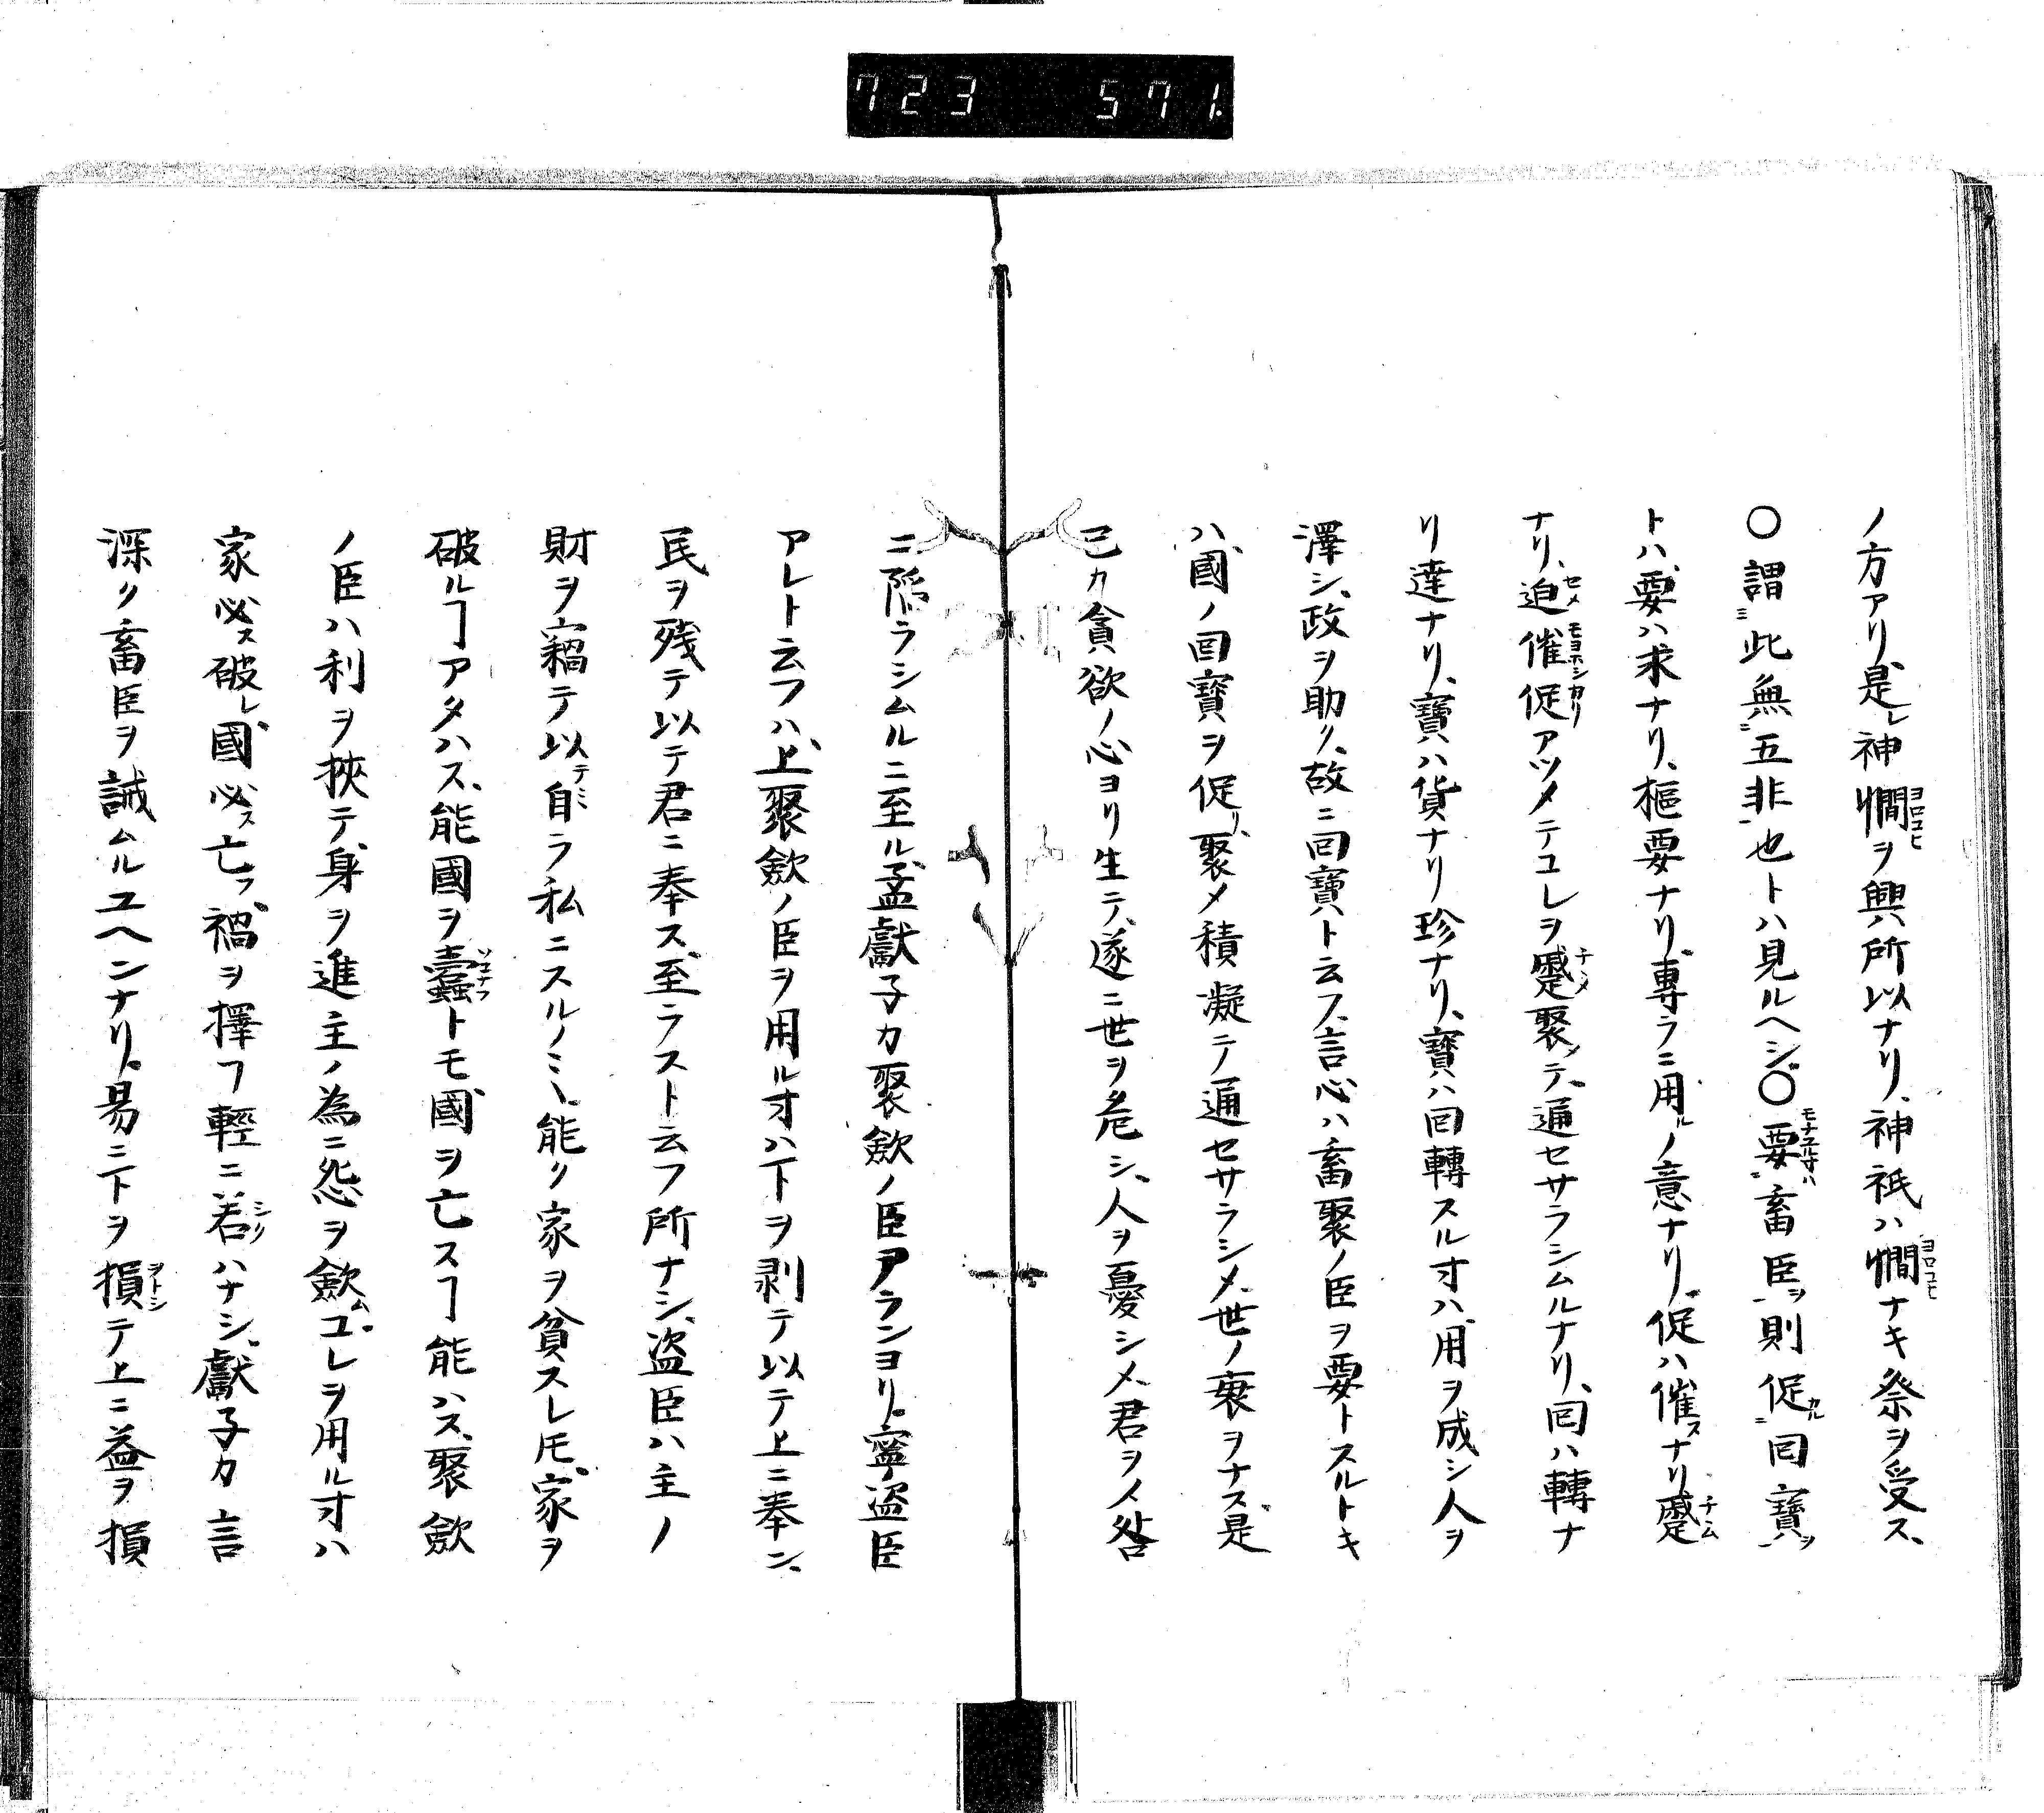 723 571.
ノ方アリ、是レ神憪ヲ興所以ナリ、神祇ハ憪ナキ祭ヲ受ス、
〇謂ミ此無ニ五非一也トハ見ルヘシ〇要畜臣ヲ則促ニ回寶ヲ
トハ、要ハ求ナリ、樞要ナリ、專ラニ用ルノ意ナリ、促ハ催スナリ蹙
ナリ、迫催促アツメテコレヲ蹙聚メテ、通セサラシムルナリ、回ハ轉ナ
リ達ナリ、寶ハ貨ナリ珍ナリ、寶ハ回轉スル寸ハ、用ヲ成シ人ヲ
澤シ、政ヲ助ク、故ニ回寶ハト云フ、言心ハ畜聚ノ臣ヲ要トスルトキ
ハ、國ノ回寶ヲ促リ、聚メ積凝テ通セサラシメ、世ノ衰ヲナス、是
己カ貪欲ノ心ヨリ生テ、遂ニ世ヲ危シ、人ヲ憂シメ、君ヲノ咎
ニ、陷ラシムルニ至ル、孟獻子カ聚斂ノ臣アランヨリ、寧盜臣
アレト云フハ、上聚斂ノ臣ヲ用ル寸ハ下ヲ剥テ以テ上ニ奉シ、
民ヲ残テ以テ君ニ奉ス、至ラスト云フ所ナシ、盜臣ハ主ノ
財ヲ竊テ以テ自ラ私ニスルノミ、能ク家ヲ貧スレ𪜈、家ヲ
破ルヿアタハス、能國ヲ蠹トモ國ヲ亡スヿ能ハス、聚斂
ノ臣ハ利ヲ挾テ、身ヲ進主ノ為ニ怨ヲ斂ム、コレヲ用ル寸ハ
家必ス破レ、國必ス亡フ、禍ヲ擇フ輕ニ若ハナシ、獻子カ言
深ク畜臣ヲ誡ムルユヘンナリ、易ニ下ヲ損テ上ニ益ヲ損